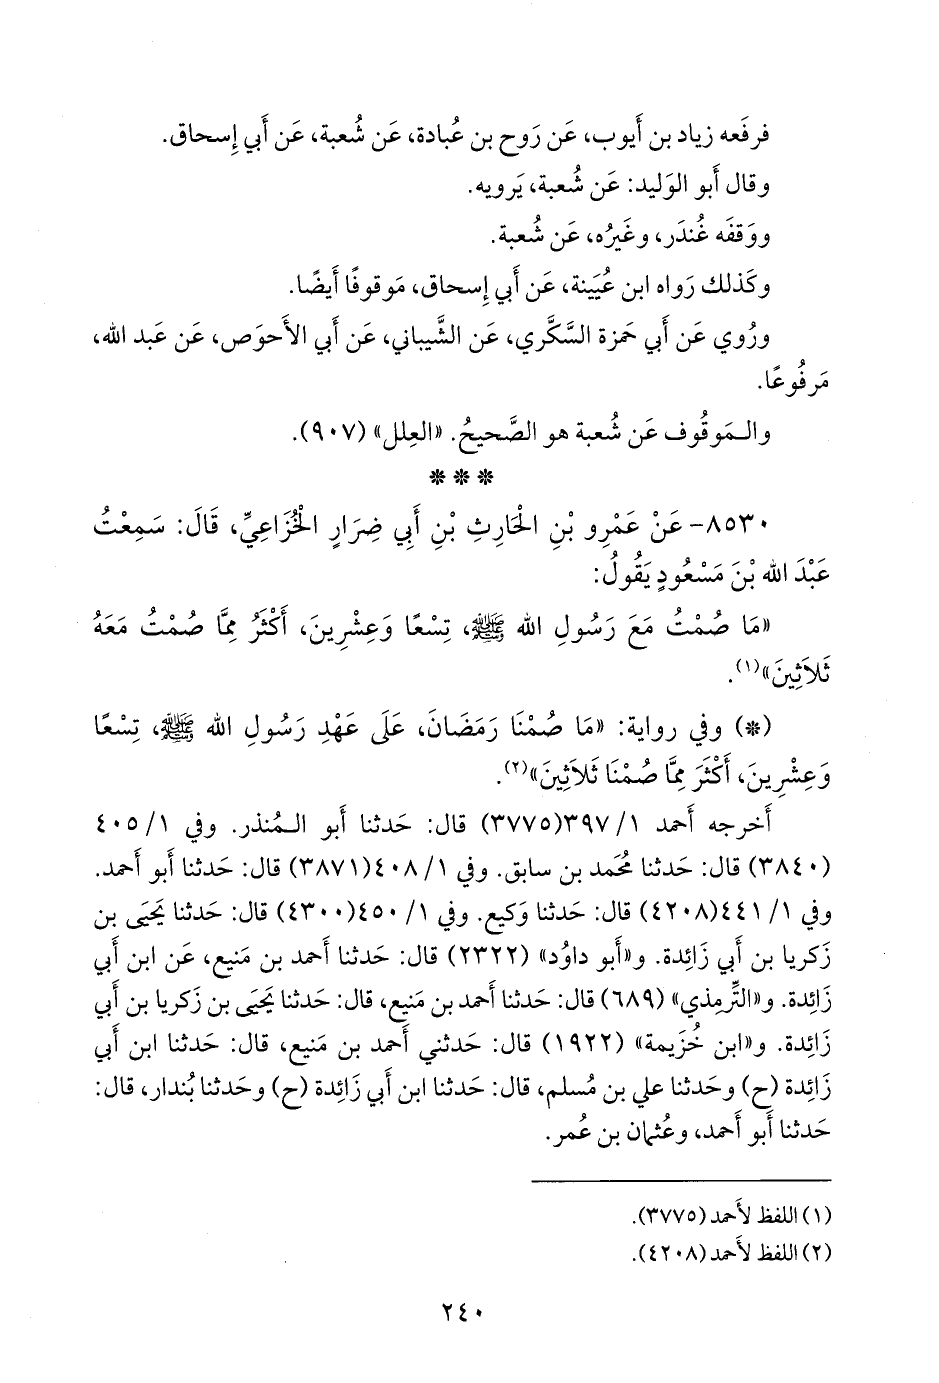 فرفَعه زياد بن أَيوب، عَن رَوح بن عُبادة، عَن شُعبة، عَن أَبي إِسحاق.
وقال أَبو الوَليد: عَن شُعبة، يَرويه.
ووَقفَه غُندَر، وغَيرُه، عَن شُعبة.
وكَذلك رَواه ابن عُيَينة، عَن أَبي إِسحاق، مَوقوفًا أَيضًا.
ورُوي عَن أَبي حَمزة السَّكَّري، عَن الشَّيباني، عَن أَبي الأَحوَص، عَن عَبد الله،
مَرفُوعًا.
والـمَوقُوف عَن شُعبة هو الصَّحيحُ. «العِلل» (٩٠٧).
* * *
٨٥٣٠- عَنْ عَمْرِو بْنِ الْحَارِثِ بْنِ أَبِي ضِرَارٍ الْخُزَاعِيِّ، قَالَ: سَمِعْتُ
عَبْدَ الله بْنَ مَسْعُودٍ يَقُولُ:
«مَا صُمْتُ مَعَ رَسُولِ الله ﷺ، تِسْعًا وَعِشْرِينَ، أَكْثَرُ مِمَّا صُمْتُ مَعَهُ
ثَلَاثِينَ»(١).
(*) وفي رواية: «مَا صُمْنَا رَمَضَانَ، عَلَى عَهْدِ رَسُولِ الله ﷺ، تِسْعًا
وَعِشْرِينَ، أَكْثَرَ مِمَّا صُمْنَا ثَلَاثِينَ»(٢).
أَخرجه أَحمد ١/ ٣٩٧(٣٧٧٥) قال: حَدثنا أَبو الـمُنذر. وفي ١/ ٤٠٥
(٣٨٤٠) قال: حَدثنا مُحَمد بن سابق. وفي ١/ ٤٠٨(٣٨٧١) قال: حَدثنا أَبو أَحمد.
وفي ١/ ٤٤١(٤٢٠٨) قال: حَدثنا وَكيع. وفي ١/ ٤٥٠(٤٣٠٠) قال: حَدثنا يَحيَى بن
زَكريا بن أَبي زَائِدة. و«أَبو داوُد» (٢٣٢٢) قال: حَدثنا أَحمد بن مَنيع، عَن ابن أَبي
زَائِدة. و«التِّرمِذي» (٦٨٩) قال: حَدثنا أَحمد بن مَنيع، قال: حَدثنا يَحيَى بن زَكريا بن أَبي
زَائِدة. و«ابن خُزَيمة» (١٩٢٢) قال: حَدثني أَحمد بن مَنيع، قال: حَدثنا ابن أَبي
زَائِدة (ح) وحَدثنا علي بن مُسلم، قال: حَدثنا ابن أَبي زَائِدة (ح) وحَدثنا بُندار، قال:
حَدثنا أَبو أَحمد، وعُثمان بن عُمر.
(١) اللفظ لأَحمد (٣٧٧٥).
(٢) اللفظ لأَحمد (٤٢٠٨).
٢٤٠